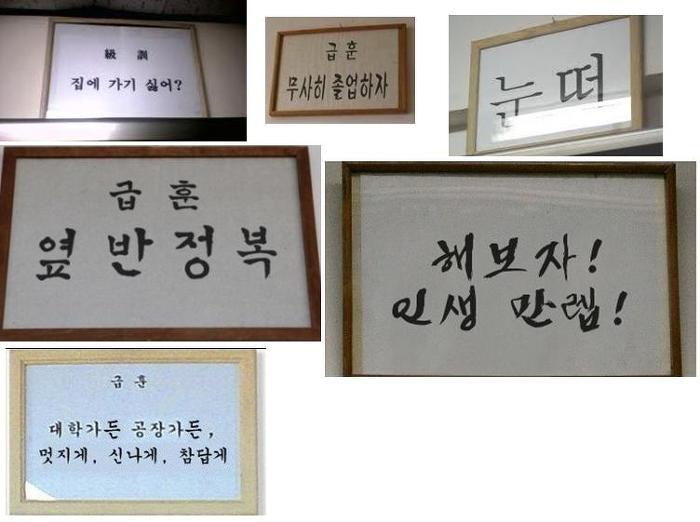 級 訓
집에 가기 싫어?
급 훈
무사히 졸업하자
눈 떠
급 훈
옆 반 정 복
해보자!
인생 만렙!
급 훈
대학가든 공장가든,
멋지게, 신나게, 참답게